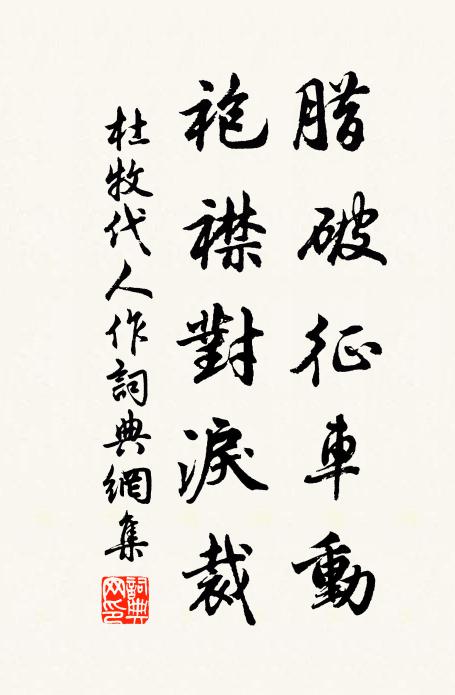 腊破征車動
袍襟對淚裁
杜牧代人作詞典網集
詞典網印